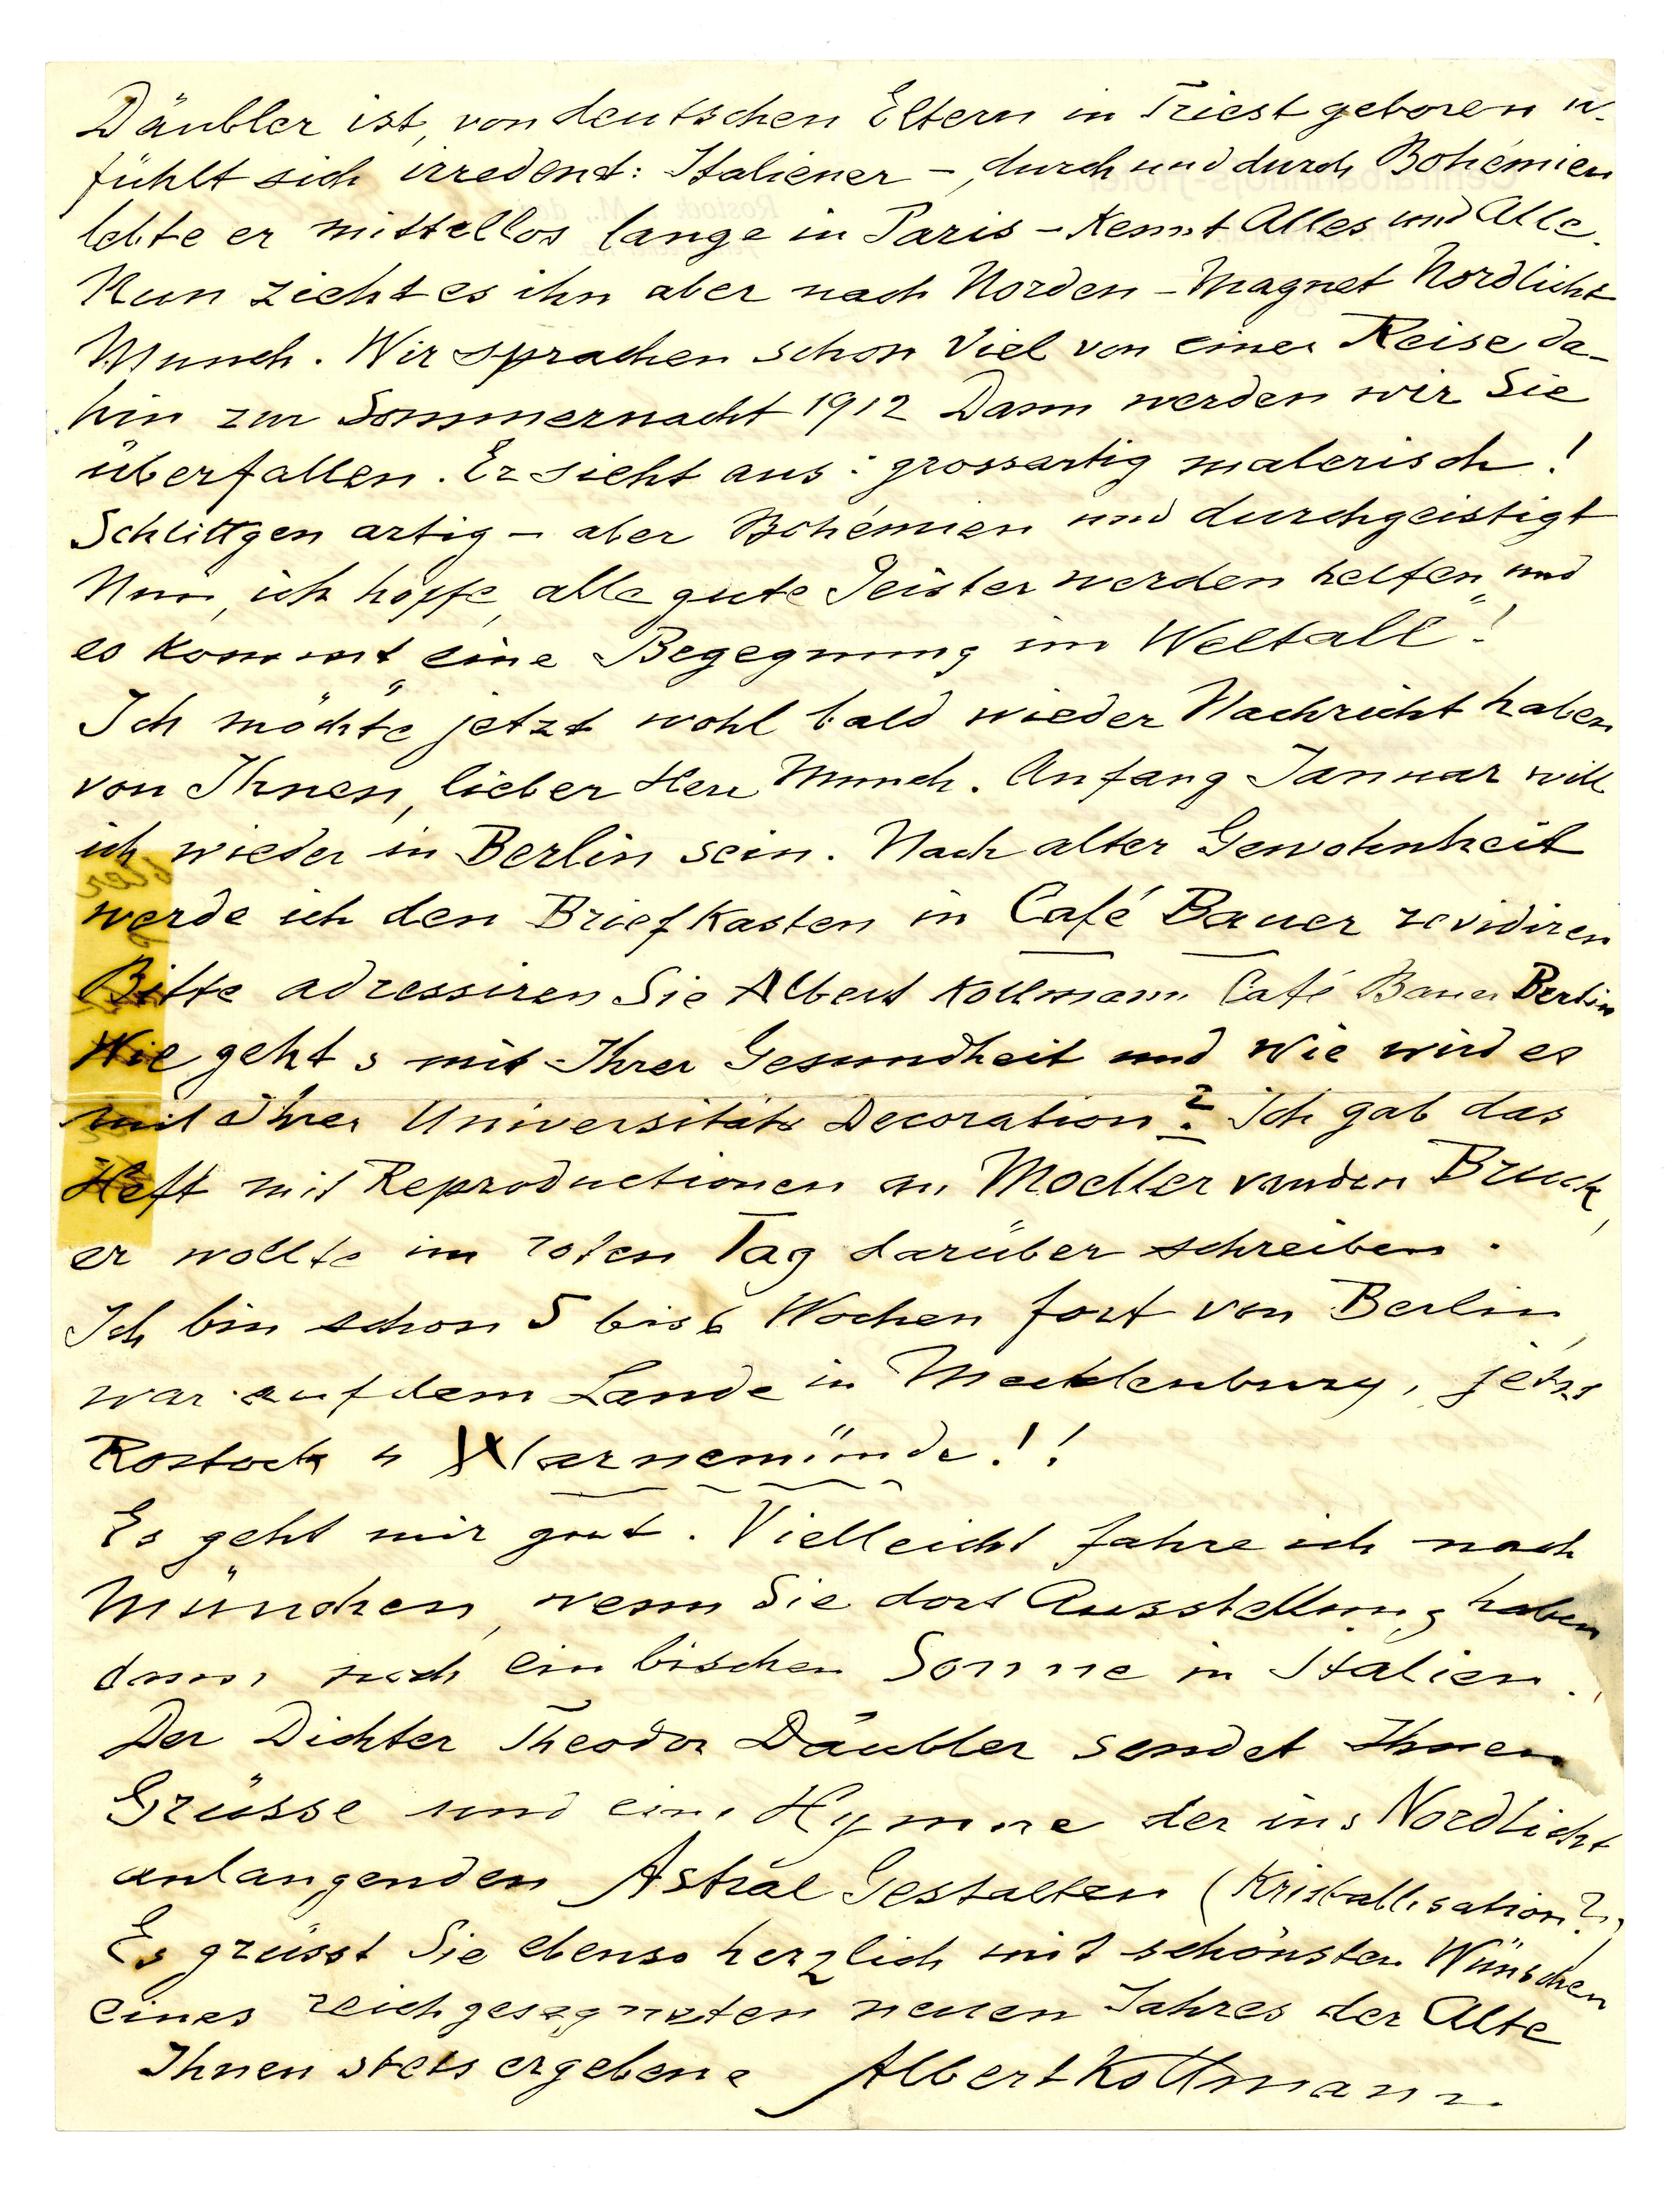 Däubler ist, von deutschen Eltern in Triest geboren u.
fühlt sich irredent: Italiener –, durch und durch Bohémien
lebte er mittellos lange in Paris – Kennt Alles und Alle.
Nun zieht es ihn aber nach Norden – Magnet Nordlicht
Munch. Wir sprachen schon viel von einer Reise da-
hin zur Sommernacht 1912 Dann werden wir Sie
überfallen. Er sieht aus: grossartig malerisch!
Schlittgen artig – aber Bohémien und durchgeistigt
Nun, ich hoffe, alle gute Geister werden helfen, und
es kommt „eine Begegnung im Weltall"!
Ich möchte jetzt wohl bald wieder Nachricht haben
von Ihnen, lieber Herr Munch. Anfang Januar will
ich wieder in Berlin sein. Nach alter Gewohnheit
werde ich den Briefkasten in Café Bauer revidiren
Bitte adressiren Sie Albert Kollmann Café Bauer Berlin
Wie geht s mit Ihrer Gesundheit und wie wird es
mit Ihrer Universitäts Decoration? Ich gab das
Heft mit Reproductionen an Moeller van den Bruck,
er wollte im roten Tag darüber schreiben.
Ich bin schon 5 bis 6 Wochen fort von Berlin,
war auf dem Lande in Mecklenburg, jetzt
Rostock u Warnemünde!!
Es geht mir gut. Vielleicht fahre ich nach
München, wenn Sie dort Ausstellung haben
dann noch ein bischen Sonne in Italien.
Der Dichter Theodor Däubler sendet Ihnen
Grüsse und eine Hymne der ins Nordlicht
anlangenden Astral Gestalten (Kristallisation?)
Es grüsst Sie ebenso herzlich mit schönsten Wünschen
eines reichgesegneten neuen Jahres der Alte
Ihnen stets ergebene Albert Kollmann.